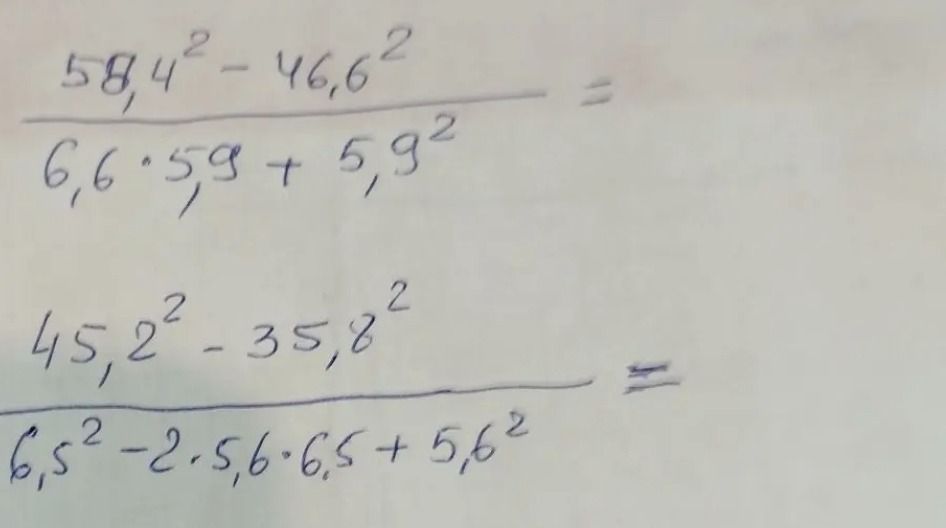 58,4² - 46,6²
6,6 · 5,9 + 5,9² =
45,2² - 35,8²
6,5² - 2 · 5,6 · 6,5 + 5,6² =